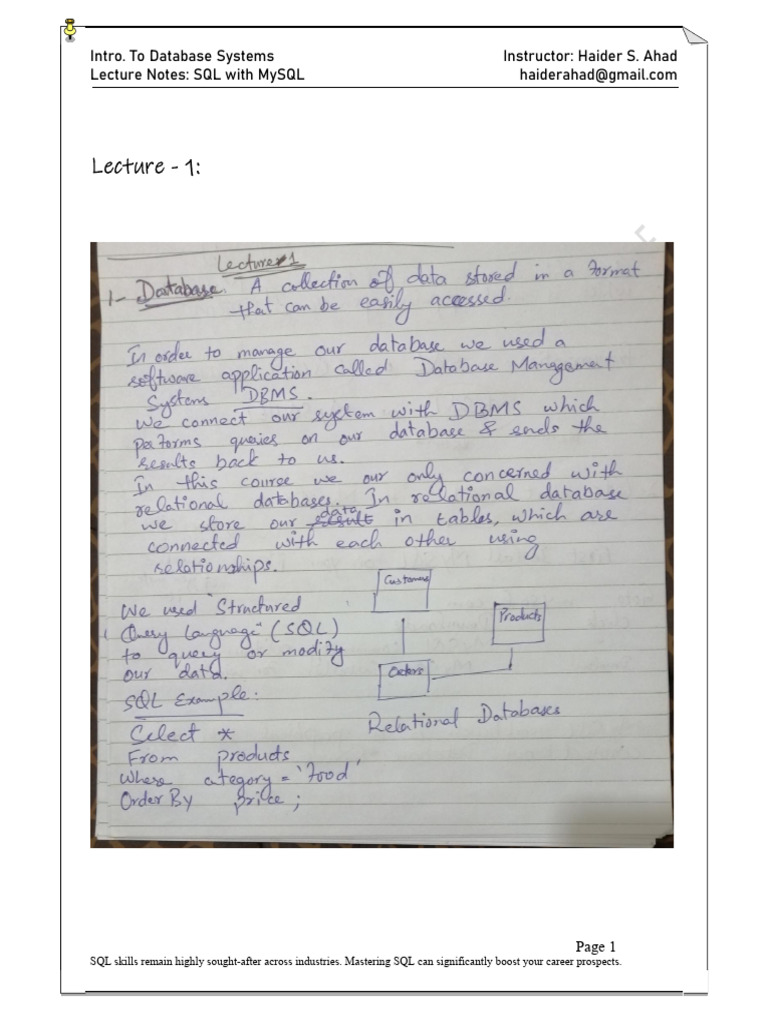 Intro. To Database Systems
Instructor: Haider S. Ahad
Lecture Notes: SQL with MySQL
haiderahad@gmail.com
Lecture - 1:
Lecture 1
1- Database. A collection of data stored in a format
that can be easily accessed.
In order to manage our database we used a
software application called Database Management
System DBMS.
We connect our system with DBMS which
performs queries on our database & sends the
results back to us.
In this course we our only concerned with
relational databases. In relational database
we store our data in tables, which are
connected with each other using
relationships.
We used "Structured
Query Language" (SQL)
to query or modify
our data.
Customers
Products
Orders
Relational Databases
SQL Example:
Select *
From products
Where category = 'Food'
Order By price;
Page 1
SQL skills remain highly sought-after across industries. Mastering SQL can significantly boost your career prospects.